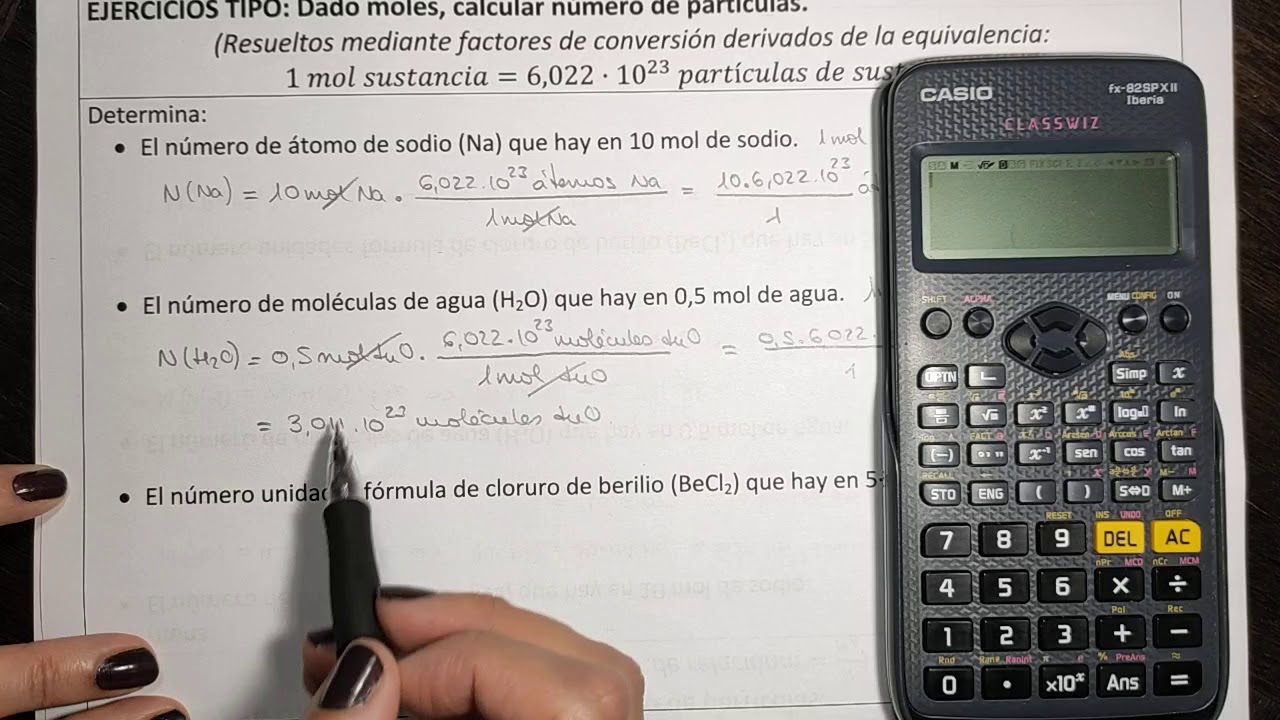 EJERCICIOS TIPO: Dado moles, calcular número de partículas.
(Resueltos mediante factores de conversión derivados de la equivalencia:
1 mol sustancia = 6,022 · 10²³ partículas de sust
Determina:
• El número de átomo de sodio (Na) que hay en 10 mol de sodio. 1 mol
N(Na) = 10 mol Na · 6,022·10²³ átomos Na / 1 mol Na = 10·6,022·10²³ / 1 á
• El número de moléculas de agua (H₂O) que hay en 0,5 mol de agua.
N(H₂O) = 0,5 mol H₂O · 6,022·10²³ moléculas H₂O / 1 mol H₂O = 0,5·6,022· / 1
= 3,011·10²³ moléculas H₂O
• El número unidad fórmula de cloruro de berilio (BeCl₂) que hay en 5
CASIO
fx-82SPXII
Iberia
CLASSWIZ
SHIFT ALPHA MENU CONFIG ON
Abs
OPTN Simp x
√ x² log Ln
(−) x⁻¹ sen cos tan
RECALL
STO ENG ( ) S⇔D M+
RESET INS UNDO OFF
7 8 9 DEL AC
nPr MCD nCr MCM
4 5 6 × ÷
Pol Rec
1 2 3 + −
Rnd Ran# RanInt π e % PreAns ≈
0 • ×10ˣ Ans =